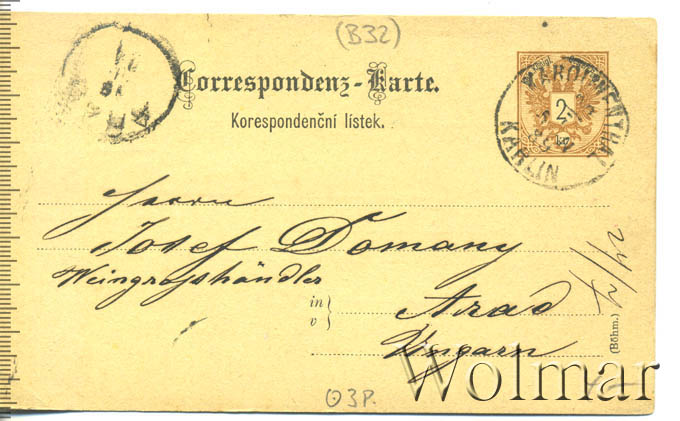 (B32)
Correspondenz-Karte.
Korespondenční lístek.
KAROLINENTHAL
KARLIN
2
Herrn
Josef Domany
Weingrosshändler
in
v
Arad
Ungarn
(Böhm.)
Wolmar